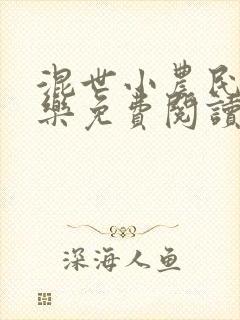 混世小農民
樂免費閱讀
深海人鱼